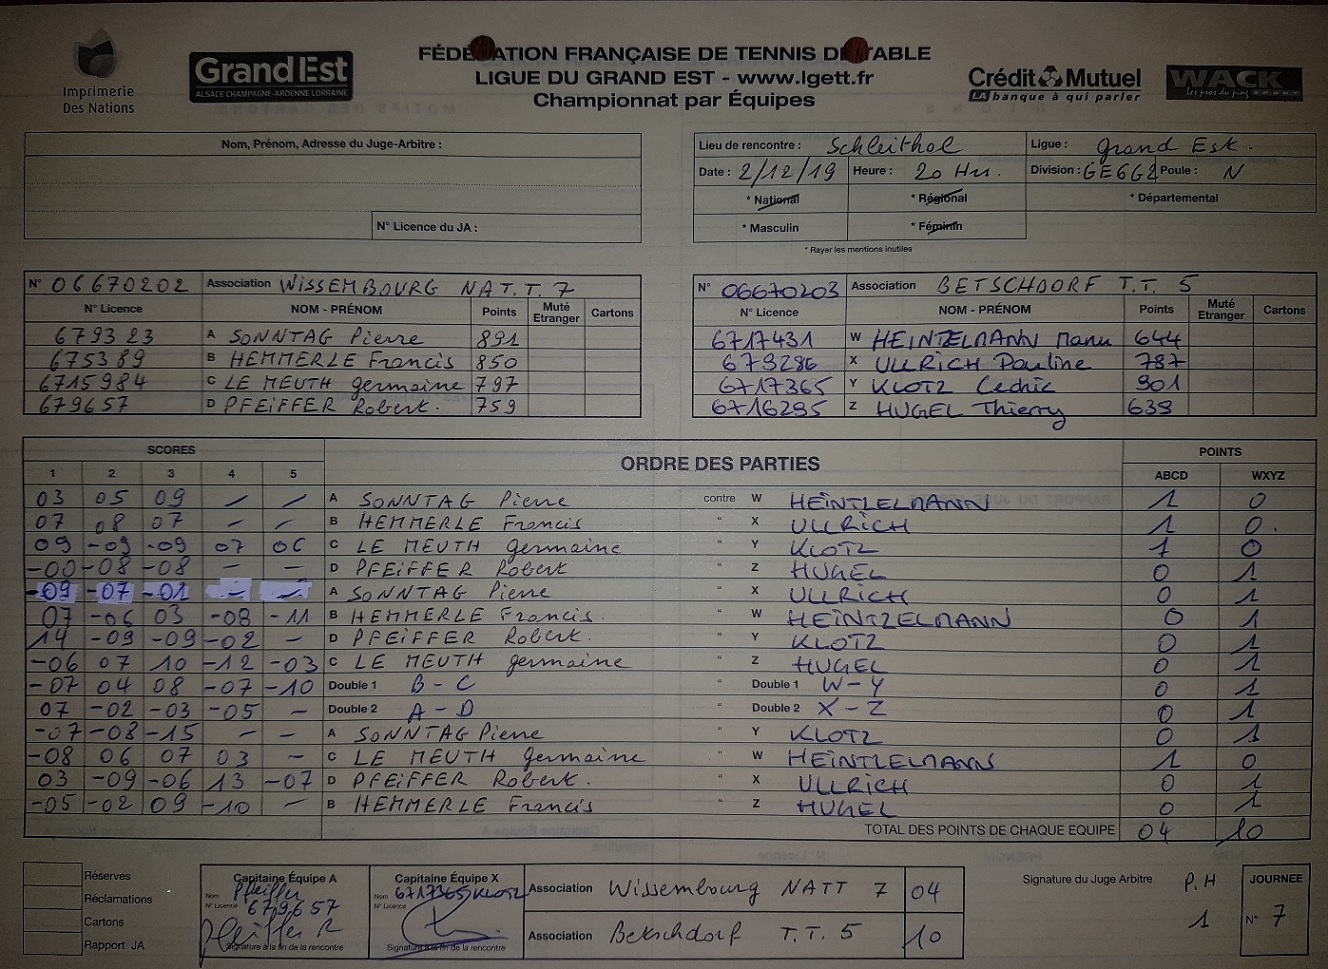 Imprimerie
Des Nations
Grand Est
ALSACE CHAMPAGNE-ARDENNE LORRAINE
FÉDÉRATION FRANÇAISE DE TENNIS DE TABLE
LIGUE DU GRAND EST - www.lgett.fr
Championnat par Équipes
Crédit Mutuel
LA banque à qui parler
WACK
les pros du ping
Nom, Prénom, Adresse du Juge-Arbitre :
N° Licence du JA :
Lieu de rencontre : Schleithal Ligue : grand Est.
Date : 2/12/19 Heure : 20 Hrs. Division : GE6G2 Poule : N
* National * Régional * Départemental
* Masculin * Féminin
* Rayer les mentions inutiles
N° 06670202 Association WISSEMBOURG NAT.T. 7
N° Licence NOM - PRÉNOM Points Muté Etranger Cartons
679323 A SONNTAG Pierre 891
675389 B HEMMERLE Francis 850
6715984 C LE MEUTH germaine 797
679657 D PFEIFFER Robert. 759
N° 06670203 Association BETSCHDORF T.T. 5
N° Licence NOM - PRÉNOM Points Muté Etranger Cartons
6717431 W HEINTZELMANN Manu 644
679286 X ULLRICH Pauline 787
6717365 Y KLOTZ Cedric 901
6716295 Z HUGEL Thierry 639
SCORES ORDRE DES PARTIES POINTS
1 2 3 4 5 ABCD WXYZ
03 05 09 - - A SONNTAG Pierre contre W HEINTZELMANN 1 0
07 08 07 - - B HEMMERLE Francis " X ULLRICH 1 0.
09 -09 -09 07 06 C LE MEUTH germaine " Y KLOTZ 1 0
-00 -08 -08 - - D PFEIFFER Robert " Z HUGEL 0 1
-09 -07 -01 - - A SONNTAG Pierre " X ULLRICH 0 1
07 -06 03 -08 -11 B HEMMERLE Francis. " W HEINTZELMANN 0 1
14 -09 -09 -02 - D PFEIFFER Robert. " Y KLOTZ 0 1
-06 07 10 -12 -03 C LE MEUTH germaine " Z HUGEL 0 1
-07 04 08 -07 -10 Double 1 B-C " Double 1 W-Y 0 1
07 -02 -03 -05 - Double 2 A-D " Double 2 X-Z 0 1
-07 -08 -15 - - A SONNTAG Pierre " Y KLOTZ 0 1
-08 06 07 03 - C LE MEUTH germaine " W HEINTZELMANN 1 0
03 -09 -06 13 -07 D PFEIFFER Robert. " X ULLRICH 0 1
-05 -02 09 -10 - B HEMMERLE Francis " Z HUGEL 0 1
TOTAL DES POINTS DE CHAQUE EQUIPE 04 10
Réserves
Réclamations
Cartons
Rapport JA
Capitaine Équipe A
Nom Pfeiffer
N° Licence 679657
Pfeiffer R
Signature à la fin de la rencontre
Capitaine Équipe X
Nom 6717365 KLOTZ
N° Licence
Signature à la fin de la rencontre
Association Wissembourg NATT 7 04
Association Betschdorf T.T. 5 10
Signature du Juge Arbitre P.H
1
JOURNEE
N° 7